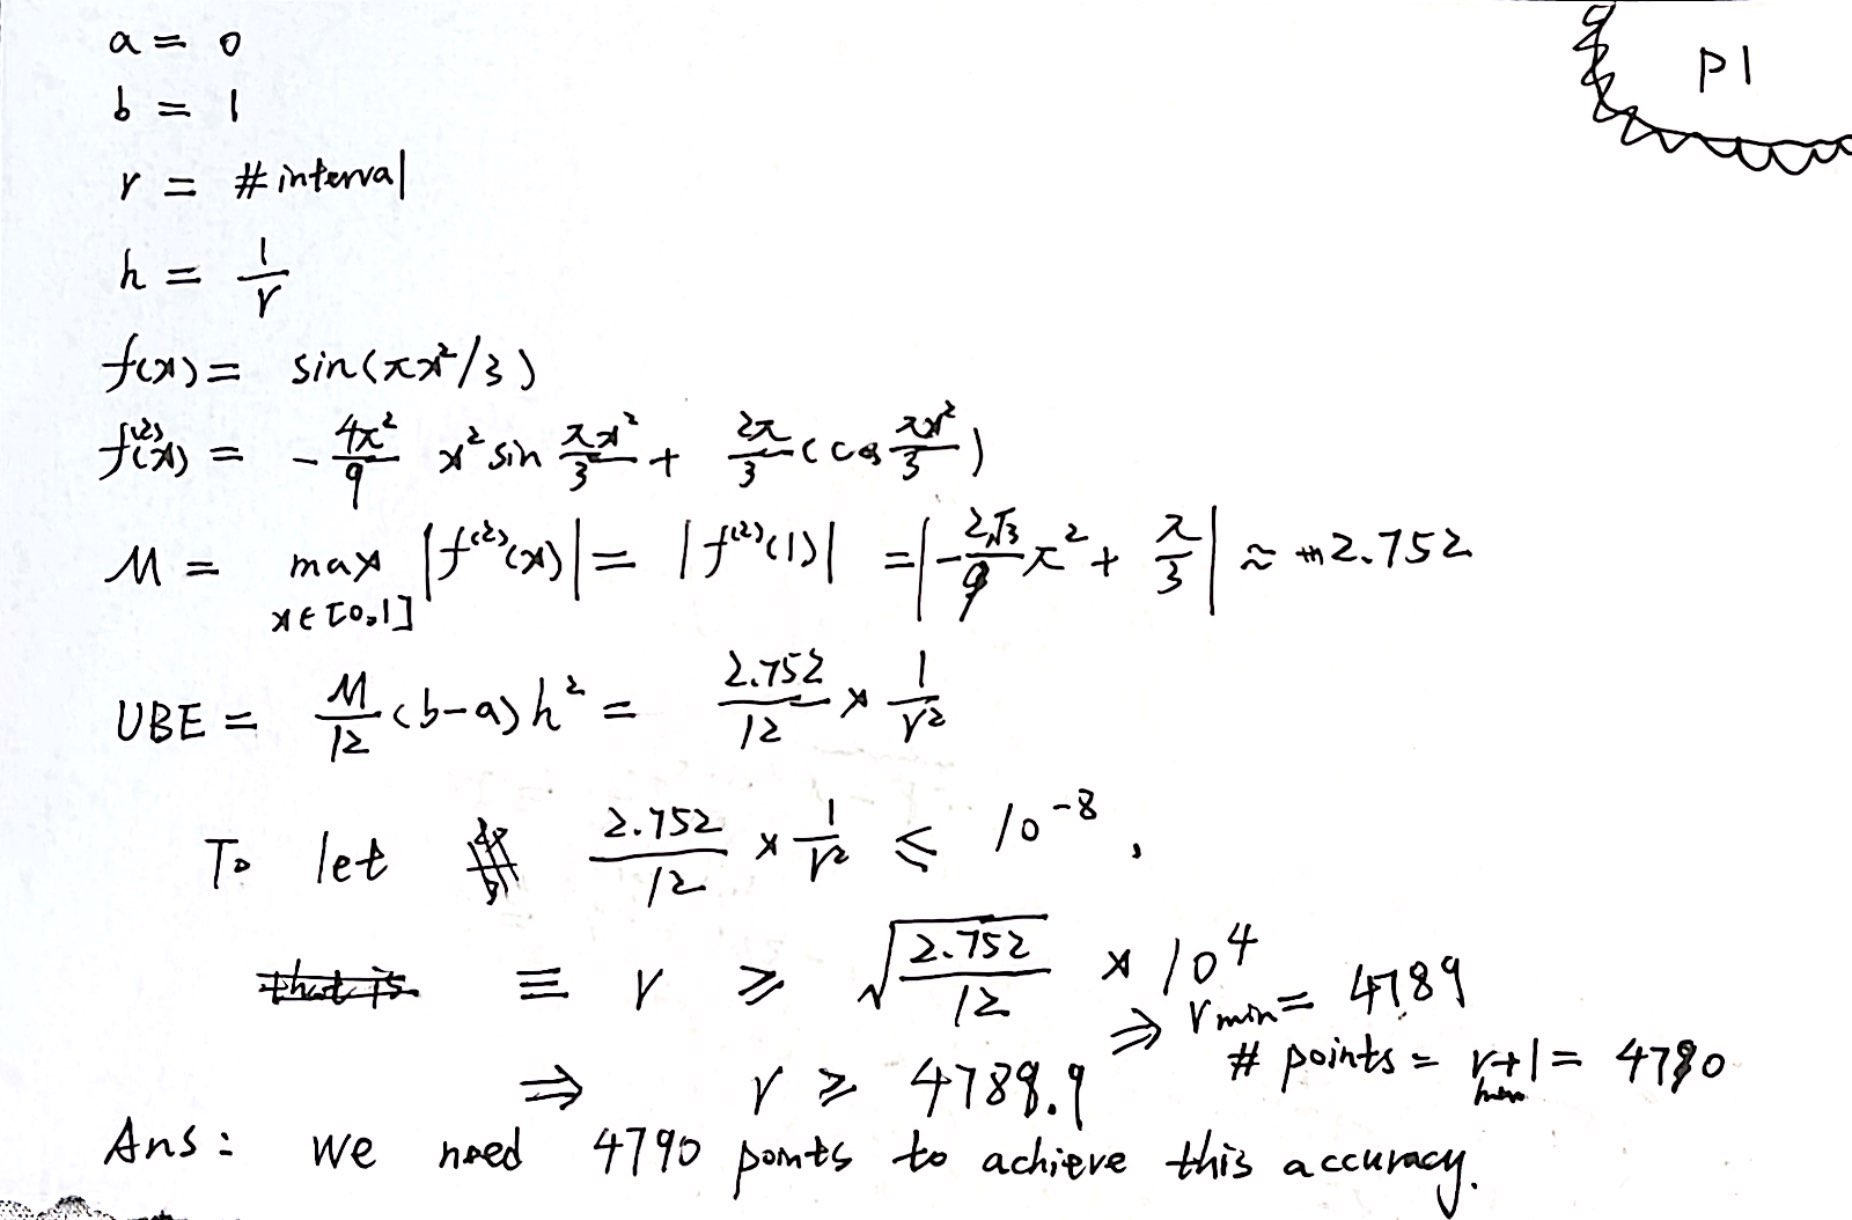 P1
a = 0
b = 1
r = # interval
h = 1/r
f(x) = sin(πx²/3)
f⁽²⁾(x) = - 4π²/9 x² sin πx²/3 + 2π/3 (cos πx²/3)
M = max x∈[0,1] |f⁽²⁾(x)| = |f⁽²⁾(1)| = |-2√3/9 π² + π/3| ≈ 2.752
UBE = M/12 (b-a) h² = 2.752/12 × 1/r²
To let 2.752/12 × 1/r² ≤ 10⁻⁸,
that is ≡ r ≥ √(2.752/12) × 10⁴
⇒ r ≥ 4788.9 ⇒ r min = 4789
# points = r min + 1 = 4790
Ans: We need 4790 points to achieve this accuracy.